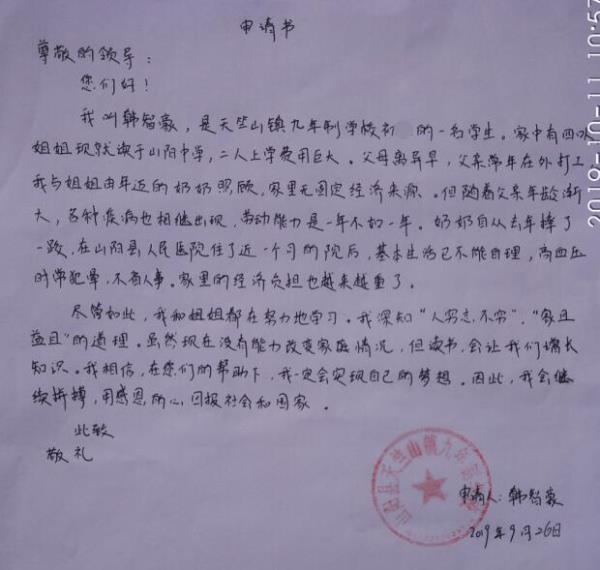 申请书
尊敬的领导：
您们好！
我叫韩智豪，是天竺山镇九年制学校初 的一名学生。家中有四口
姐姐现就读于山阳中学，二人上学费用巨大。父母离异早，父亲常年在外打工
我与姐姐由年近的奶奶照顾，家里无固定经济来源。但随着父亲年龄渐
大，各种疾病也相继出现，劳动能力是一年不如一年。奶奶自从去年摔了
一跤，在山阳县人民医院住了近一个月的院后，基本生活已不能自理，高血压
时常犯晕，不省人事。家里的经济负担也越来越重了。
尽管如此，我和姐姐都在努力地学习。我深知“人穷志不穷”，“家且
益且”的道理。虽然现在没有能力改变家庭情况，但读书，会让我们增长
知识。我相信，在您们的帮助下，我一定会实现自己的梦想。因此，我会继
续拼搏，用感恩的心回报社会和国家。
此致
敬礼
山阳县天竺山镇九年制学校
申请人：韩智豪
2019年9月26日
2019-10-11 10:57